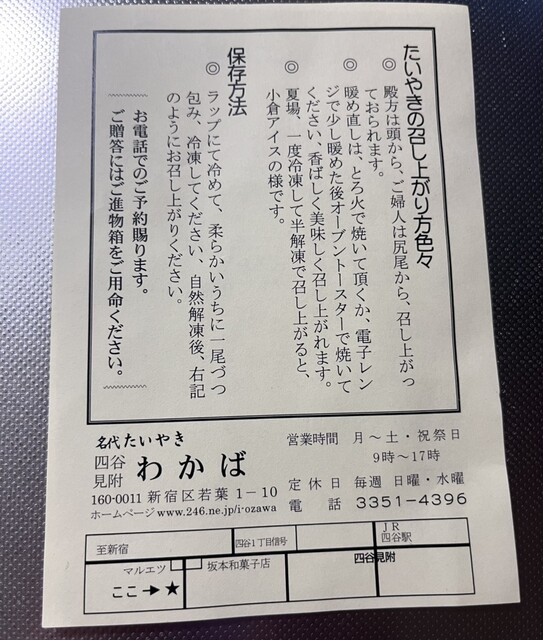 たいやきの召し上がり方色々
◎ 殿方は頭から、ご婦人は尻尾から、召し上がっ
ておられます。
◎ 暖め直しは、とろ火で焼いて頂くか、電子レン
ジで少し暖めた後オーブントースターで焼いて
ください、香ばしく美味しく召し上がれます。
◎ 夏場、一度冷凍して半解凍で召し上がると、
小倉アイスの様です。
保存方法
◎ ラップにて冷めて、柔らかいうちに一尾づつ
包み、冷凍してください、自然解凍後、右記
のようにお召し上がりください。
お電話でのご予約賜ります。
ご贈答にはご進物箱をご用命ください。
名代たいやき
四谷
見附
わかば
160-0011 新宿区若葉 1－10
ホームページ www.246.ne.jp/i-ozawa
営業時間 月～土・祝祭日
9時～17時
定休日 毎週 日曜・水曜
電話 3351-4396
至新宿
四谷1丁目信号
JR
四谷駅
マルエツ
坂本和菓子店
四谷見附
ここ→★